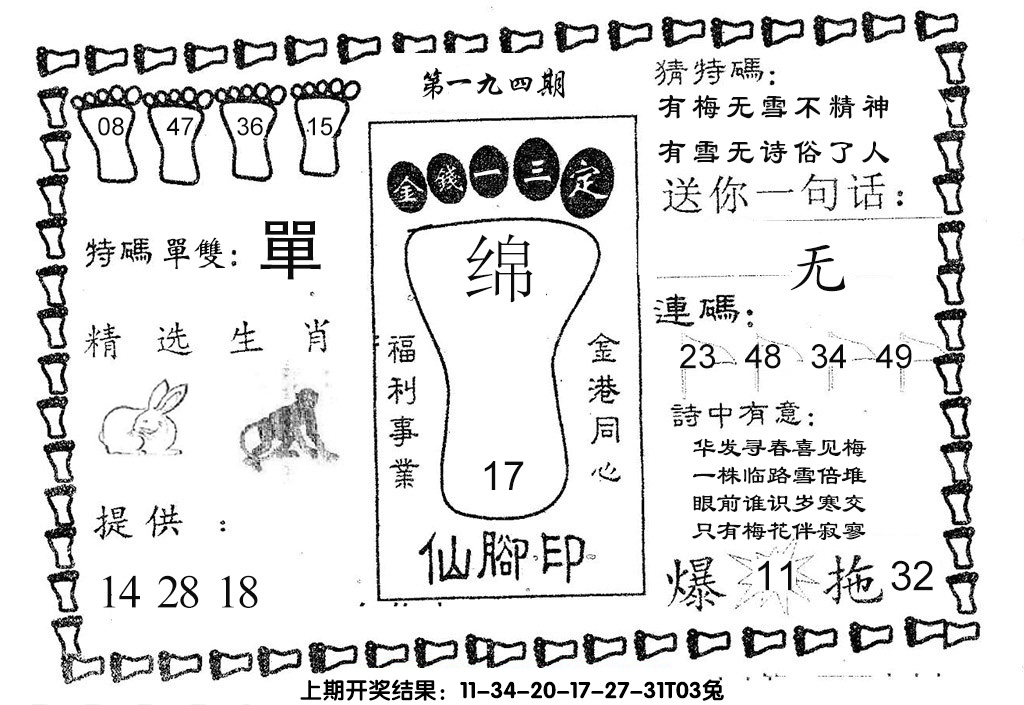 第一九四期
08 47 36 15
特碼單雙：單
精选生肖
提供：
14 28 18
金錢一三定
绵
福利事業
金港同心
17
仙腳印
猜特碼：
有梅无雪不精神
有雪无诗俗了人
送你一句话：
无
連碼：
23 48 34 49
詩中有意：
华发寻春喜见梅
一株临路雪倍堆
眼前谁识岁寒交
只有梅花伴寂寥
爆 11 拖 32
上期开奖结果：11-34-20-17-27-31T03兔